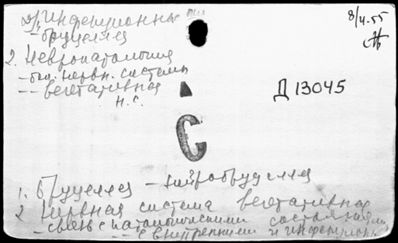 др. инфекционные
- бруцеллез
8/IV.55
2. Невропатология
- бол. нервн. системы
-- вегетативная
н.с.
Д 13045
С
1. Бруцеллез - нейробруцеллез
2. Нервная система вегетативная
- связь с патологическими состояниями
-- с внутренними и инфекцион